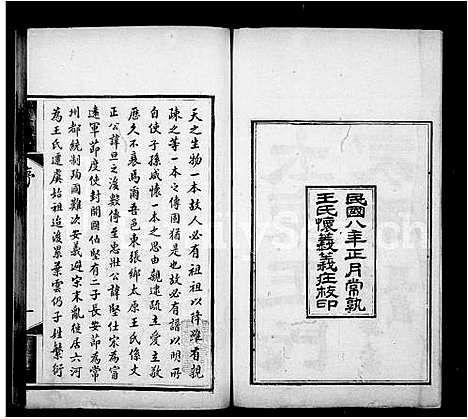 民國八年正月常熟
王氏懷義義莊校印
序
天之生物一本故人必有祖祖以降雖有親
疎之等一本之傳固也故必有譜以明所
自使子孫咸懷一本之思由親逮疏主愛主敬
歷久不衰焉爾吾邑東張鄉太原王氏係文
正公諱旦之後數傳至忠壯公諱堅仕宋為甯
遠軍節度使封開國伯堅有二子長安節為常
州都統制殉國難次安義避宋末亂徙居六河
為王氏遷虞始祖迨後累葉雲仍子姓繁衍